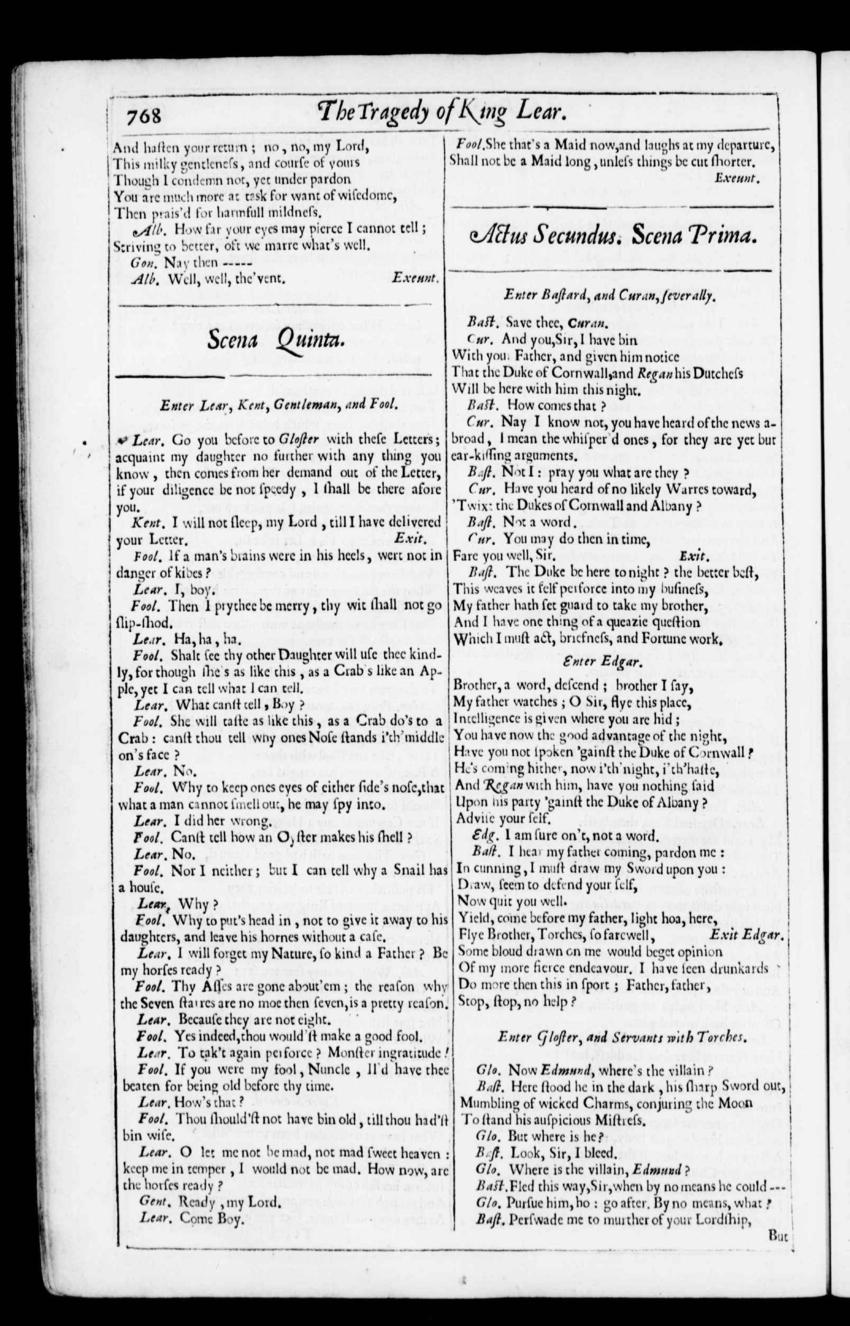 768
The Tragedy of King Lear.
And hasten your return; no, no, my Lord,
This milky gentleness, and course of yours
Though I condemn not, yet under pardon
You are much more at task for want of wisedome,
Then prais'd for harmfull mildness.
Alb. How far your eyes may pierce I cannot tell;
Striving to better, oft we marre what's well.
Gon. Nay then -----
Alb. Well, well, the'vent. Exeunt.
Scena Quinta.
Enter Lear, Kent, Gentleman, and Fool.
Lear. Go you before to Gloster with these Letters;
acquaint my daughter no further with any thing you
know, then comes from her demand out of the Letter,
if your diligence be not speedy, I shall be there afore
you.
Kent. I will not sleep, my Lord, till I have delivered
your Letter. Exit.
Fool. If a man's brains were in his heels, wert not in
danger of kibes?
Lear. I, boy.
Fool. Then I prythee be merry, thy wit shall not go
slip-shod.
Lear. Ha, ha, ha.
Fool. Shalt see thy other Daughter will use thee kind-
ly, for though she's as like this, as a Crab's like an Ap-
ple, yet I can tell what I can tell.
Lear. What canst tell, Boy?
Fool. She will taste as like this, as a Crab do's to a
Crab: canst thou tell why ones Nose stands i'th'middle
on's face?
Lear. No.
Fool. Why to keep ones eyes of either side's nose, that
what a man cannot smell out, he may spy into.
Lear. I did her wrong.
Fool. Canst tell how an Oyster makes his shell?
Lear. No.
Fool. Nor I neither; but I can tell why a Snail has
a house.
Lear. Why?
Fool. Why to put's head in, not to give it away to his
daughters, and leave his hornes without a case.
Lear. I will forget my Nature, so kind a Father? Be
my horses ready?
Fool. Thy Asses are gone about'em; the reason why
the Seven starres are no moe then seven, is a pretty reason.
Lear. Because they are not eight.
Fool. Yes indeed, thou would'st make a good fool.
Lear. To tak't again perforce? Monster ingratitude!
Fool. If you were my fool, Nuncle, Il'd have thee
beaten for being old before thy time.
Lear. How's that?
Fool. Thou should'st not have bin old, till thou had'st
bin wise.
Lear. O let me not be mad, not mad sweet heaven:
keep me in temper, I would not be mad. How now, are
the horses ready?
Gent. Ready, my Lord.
Lear. Come Boy.
Fool. She that's a Maid now, and laughs at my departure,
Shall not be a Maid long, unless things be cut shorter.
Exeunt.
Actus Secundus. Scena Prima.
Enter Bastard, and Curan, severally.
Bast. Save thee, Curan.
Cur. And you, Sir, I have bin
With you Father, and given him notice
That the Duke of Cornwall, and Regan his Dutchess
Will be here with him this night.
Bast. How comes that?
Cur. Nay I know not, you have heard of the news a-
broad, I mean the whisper'd ones, for they are yet but
ear-kissing arguments.
Bast. Not I: pray you what are they?
Cur. Have you heard of no likely Warres toward,
'Twixt the Dukes of Cornwall and Albany?
Bast. Not a word.
Cur. You may do then in time,
Fare you well, Sir. Exit.
Bast. The Duke be here to night? the better best,
This weaves it self perforce into my business,
My father hath set guard to take my brother,
And I have one thing of a queazie question
Which I must act, briefness, and Fortune work.
Enter Edgar.
Brother, a word, descend; brother I say,
My father watches; O Sir, flye this place,
Intelligence is given where you are hid;
You have now the good advantage of the night,
Have you not spoken 'gainst the Duke of Cornwall?
He's coming hither, now i'th'night, i'th'haste,
And Regan with him, have you nothing said
Upon his party 'gainst the Duke of Albany?
Advise your self.
Edg. I am sure on't, not a word.
Bast. I hear my father coming, pardon me:
In cunning, I must draw my Sword upon you:
Draw, seem to defend your self,
Now quit you well.
Yield, come before my father, light hoa, here,
Flye Brother, Torches, so farewell, Exit Edgar.
Some bloud drawn on me would beget opinion
Of my more fierce endeavour. I have seen drunkards
Do more then this in sport; Father, father,
Stop, stop, no help?
Enter Gloster, and Servants with Torches.
Glo. Now Edmund, where's the villain?
Bast. Here stood he in the dark, his sharp Sword out,
Mumbling of wicked Charms, conjuring the Moon
To stand his auspicious Mistress.
Glo. But where is he?
Bast. Look, Sir, I bleed.
Glo. Where is the villain, Edmund?
Bast. Fled this way, Sir, when by no means he could ---
Glo. Pursue him, ho: go after. By no means, what?
Bast. Perswade me to murther of your Lordship,
But